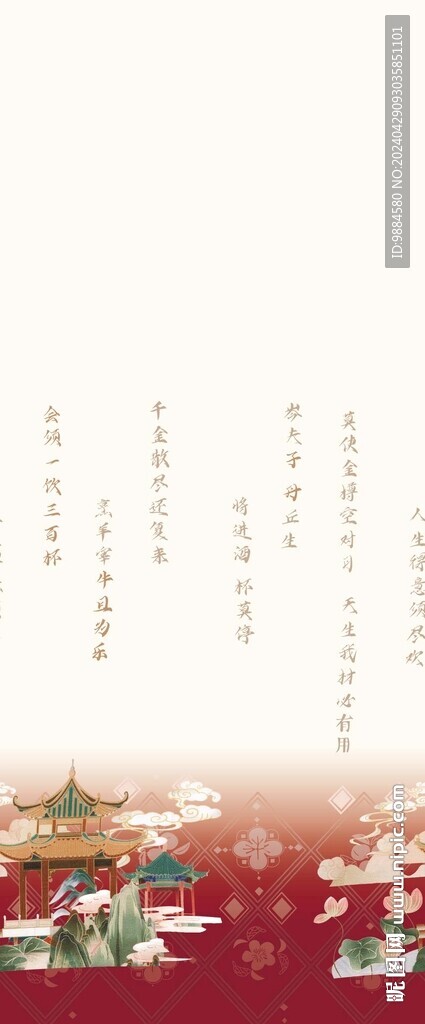 人生得意须尽欢
莫使金樽空对月 天生我材必有用
岑夫子 丹丘生
将进酒 杯莫停
千金散尽还复来
烹羊宰牛且为乐
会须一饮三百杯
ID:9884580 NO:20240429093035851101
昵图网 www.nipic.com